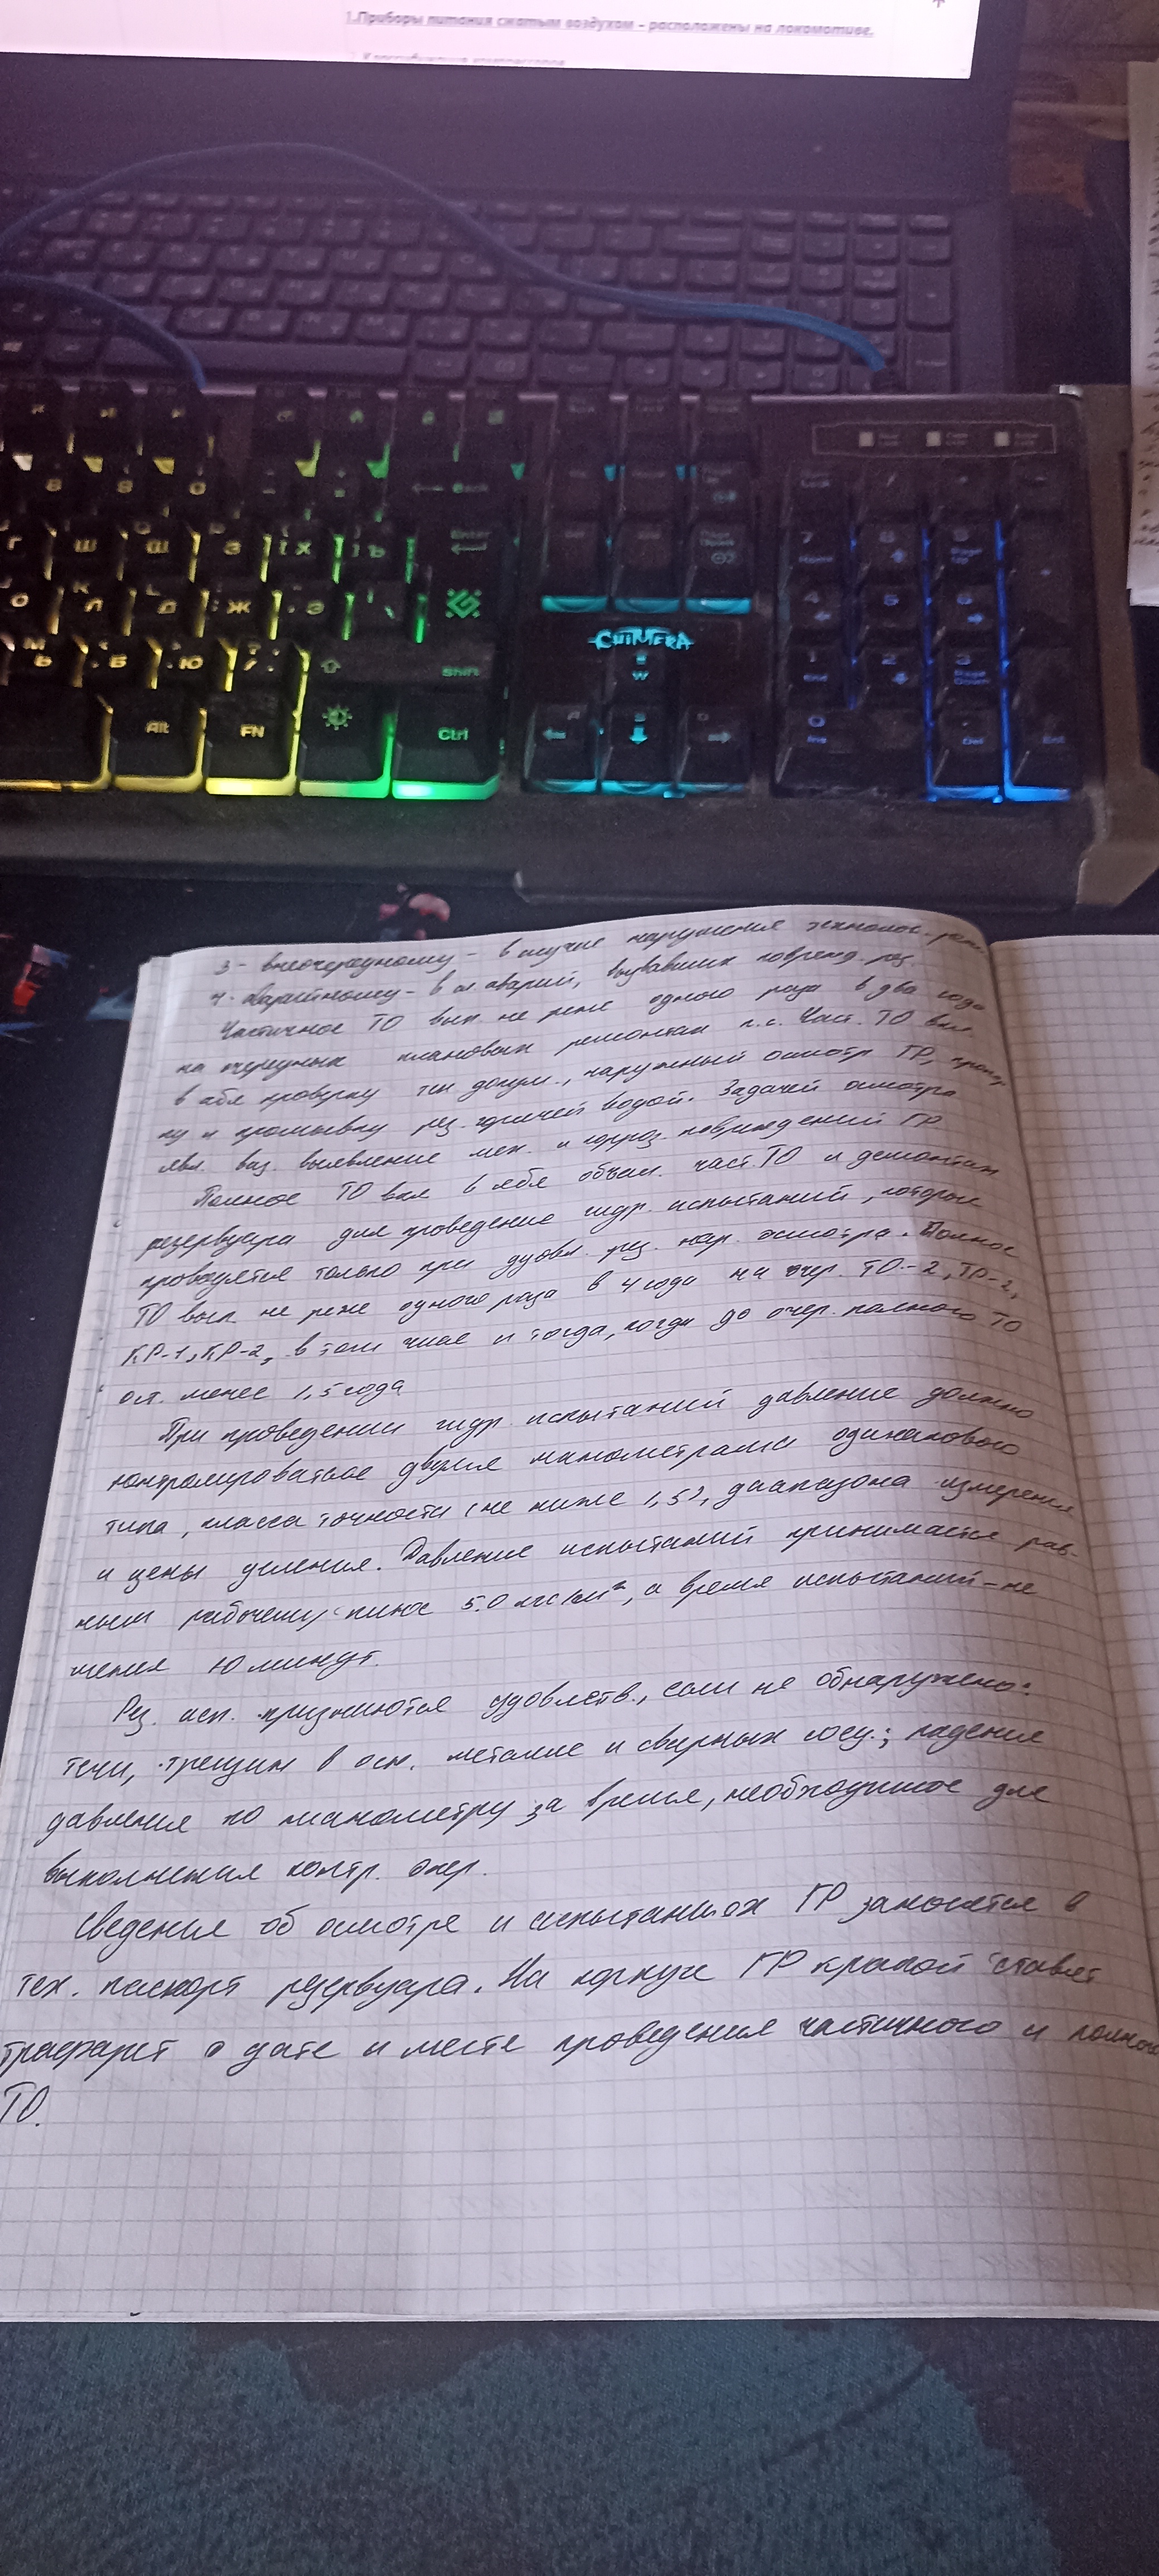 1.Приборы питания сжатым воздухом – расположены на локомотиве.
Alt
FN
Ctrl
Shift
Enter
CHIMERA
3- внеочередному - в случае нарушения технолог.
4- аварийному - в сл аварий, вызвавших поврежд. рез.
Частичное ТО вып. не реже одного раза в два года
на очередных плановых ремонтах п.с. Част. ТО вкл.
в себя проверку тех докум., наружный осмотр ГР,
ку и промывку рез. горячей водой. Задачей осмотра
явл. выявление мех. и корроз. повреждений ГР
Полное ТО вкл в себя объем. част. ТО и демонтаж
резервуара для проведение гидр. испытаний, которые
проводятся только при удовл. рез. нар. осмотра. Полное
ТО вып. не реже одного раза в 4 года на очер. ТО-2, ТР-2,
КР-1, КР-2, в том числе и тогда, когда до очер. полного ТО
ост. менее 1,5 года
При проведении гидр. испытаний давление должно
контролироваться двумя манометрами одинакового
типа, класса точности (не ниже 1,5), диапазона измерения
и цены деления. Давление испытаний принимается рав-
ным рабочему плюс 5.0 кгс/см², а время испытаний - не
менее 10 минут.
Рез. исп. признаются удовлетв., если не обнаружено:
течи, трещин в осн. металле и сварных соед.; падения
давления по манометру за время, необходимое для
выполнения контр. опер.
Сведения об осмотре и испытаниях ГР заносятся в
тех. паспорт резервуара. На корпусе ГР краской ставят
трафарет о дате и месте проведения частичного и полного
ТО.